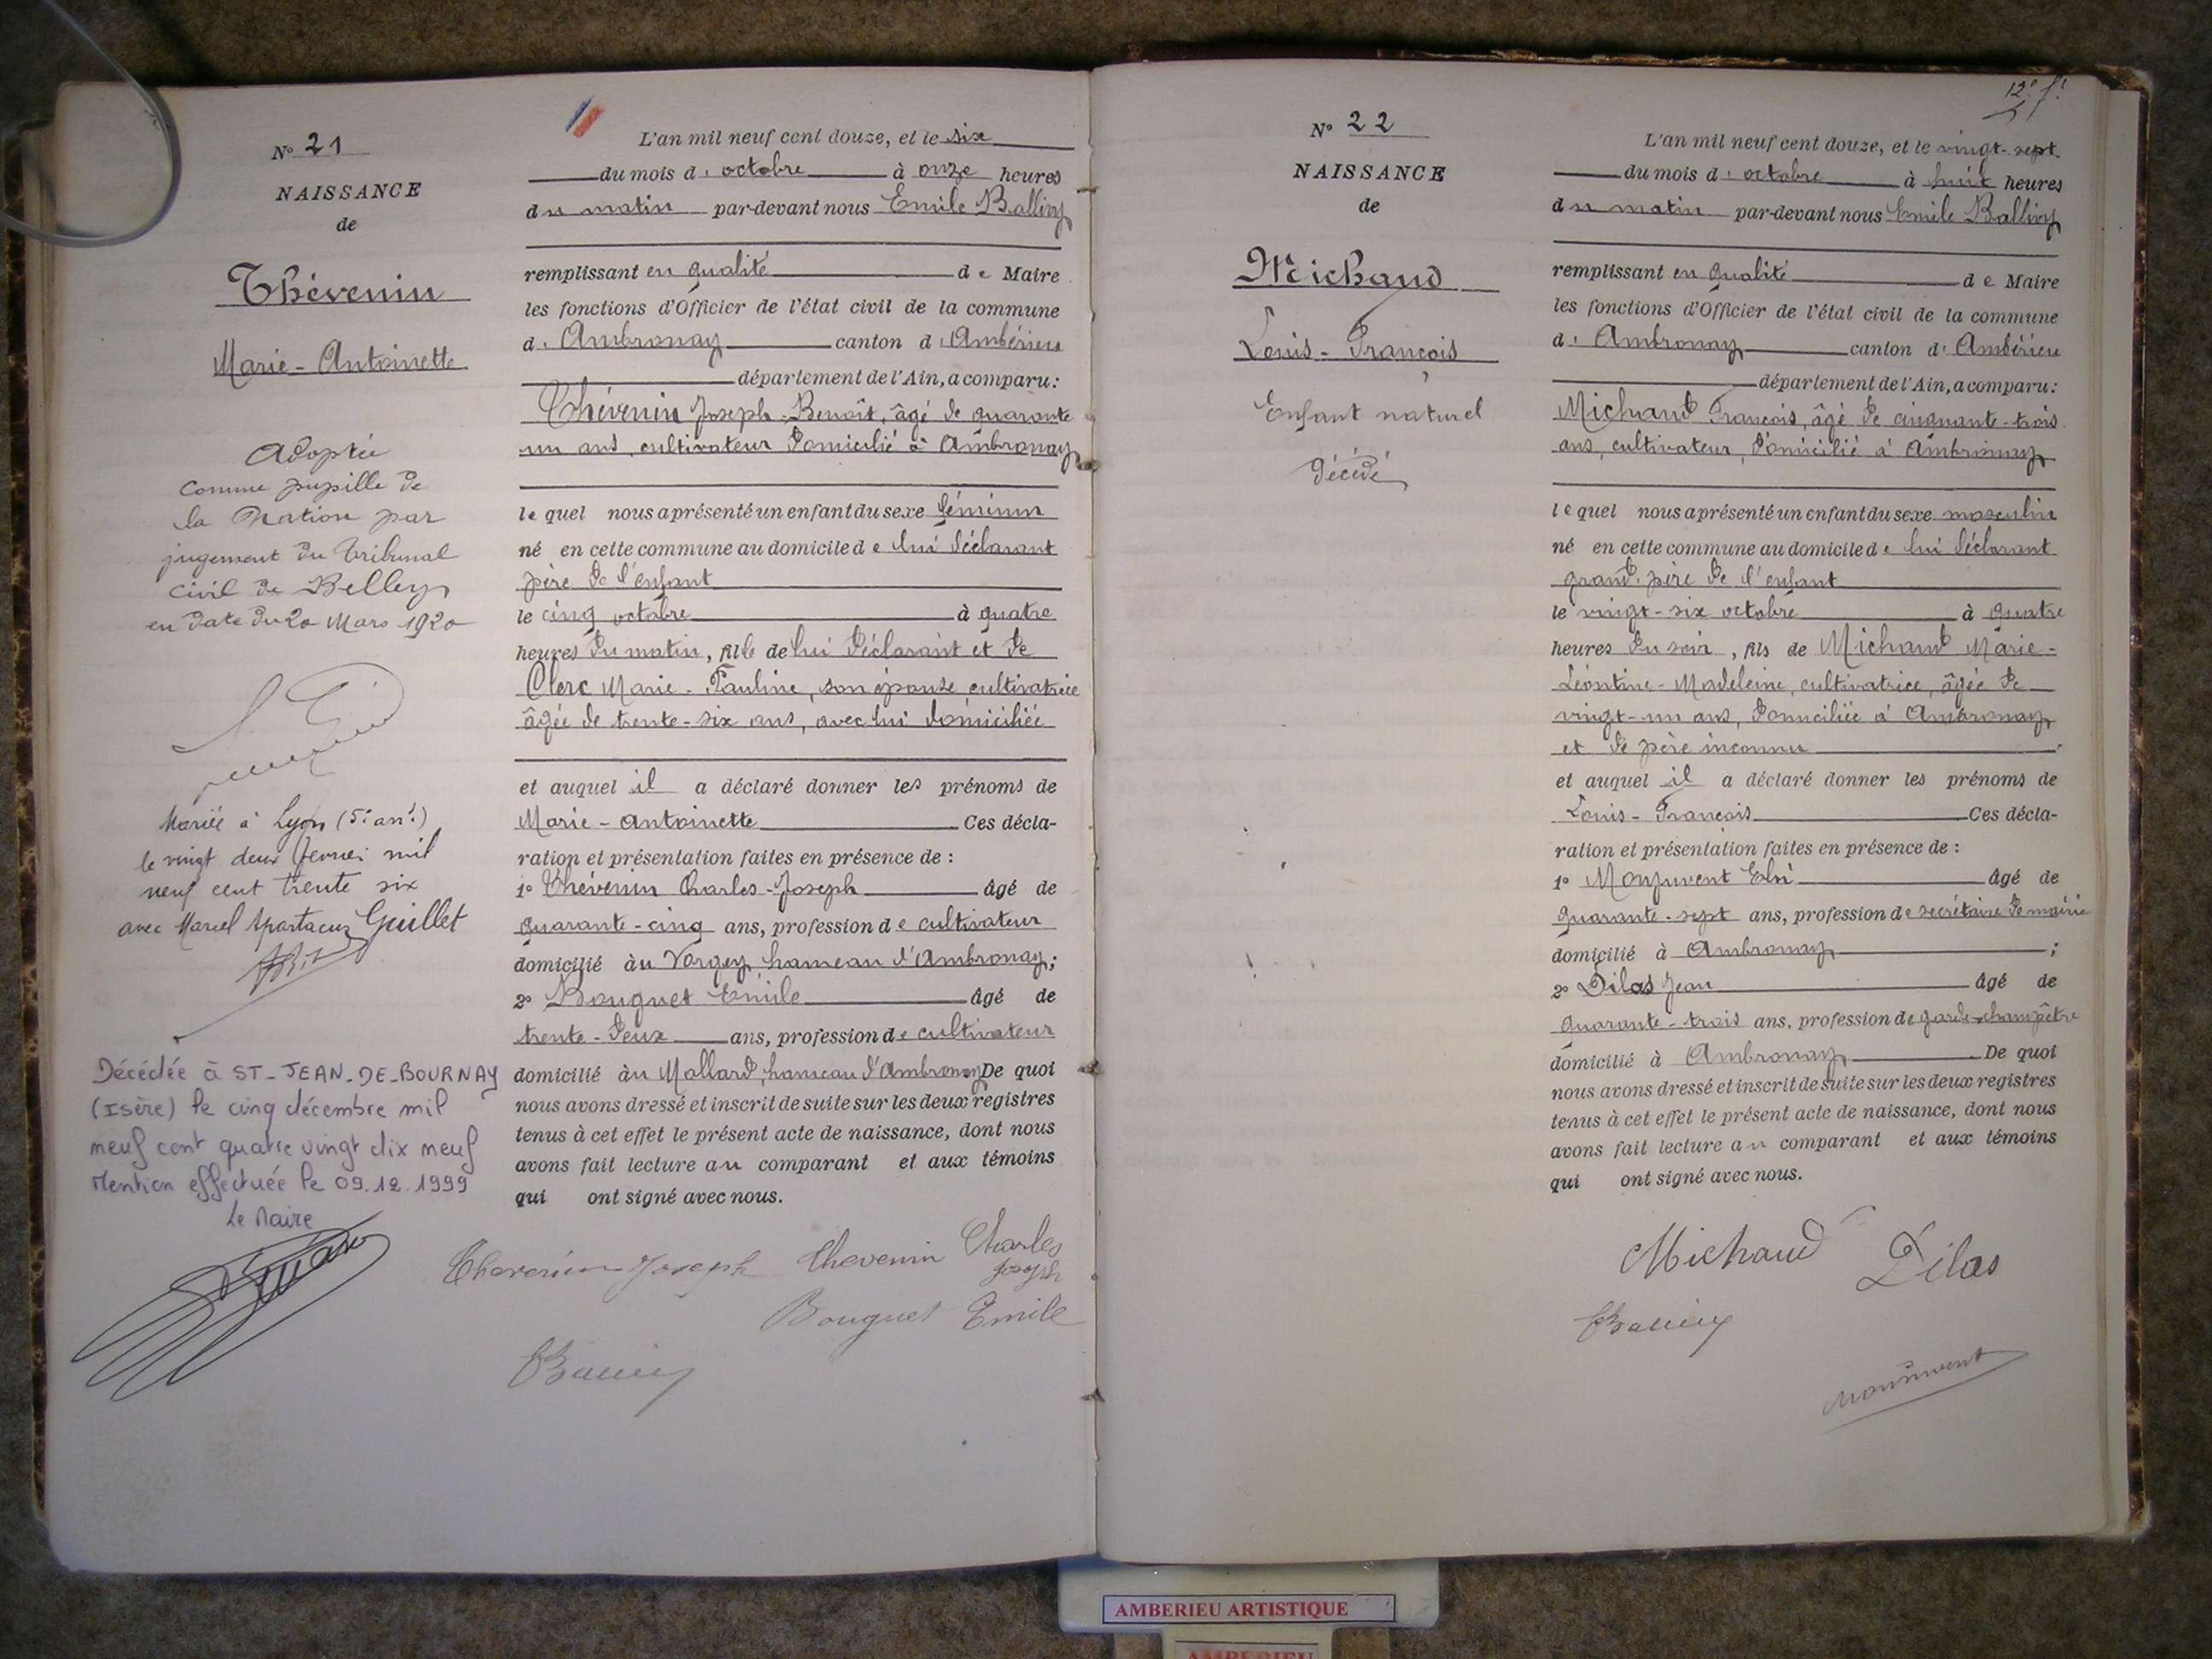 N° 21
NAISSANCE
de
Thévenin
Marie-Antoinette
Adoptée
comme pupille de
la Nation par
jugement du Tribunal
civil de Belley
en date du 20 Mars 1920
Mariée à Lyon (5e arrt)
le vingt deux février mil
neuf cent trente six
avec Marcel Spartacus Guillet
Décédée à ST-JEAN-DE-BOURNAY
(Isère) le cinq décembre mil
neuf cent quatre vingt dix neuf
Mention effectuée le 09.12.1999
Le Maire
L'an mil neuf cent douze, et le six
du mois d'octobre à onze heures
du matin par-devant nous Emile Ballivy
remplissant en qualité de Maire
les fonctions d'Officier de l'état civil de la commune
d'Ambronay canton d'Ambérieu
département de l'Ain, a comparu :
Thévenin Joseph-Benoît, âgé de quarante
un ans, cultivateur domicilié à Ambronay
lequel nous a présenté un enfant du sexe féminin
né en cette commune au domicile de lui déclarant
père de l'enfant
le cinq octobre à quatre
heures du matin, fille de lui déclarant et de
Clerc Marie-Pauline, son épouse cultivatrice
âgée de trente-six ans, avec lui domiciliée
et auquel il a déclaré donner les prénoms de
Marie-Antoinette Ces décla-
ration et présentation faites en présence de :
1° Thévenin Charles-Joseph âgé de
quarante-cinq ans, profession de cultivateur
domicilié au Vorgey hameau d'Ambronay ;
2° Bouguet Emile âgé de
trente-deux ans, profession de cultivateur
domicilié au Mollard, hameau d'Ambronay De quoi
nous avons dressé et inscrit de suite sur les deux registres
tenus à cet effet le présent acte de naissance, dont nous
avons fait lecture au comparant et aux témoins
qui ont signé avec nous.
Thevenin Joseph Thevenin Charles
Joseph
Bouguet Emile
EBallivy
12e ft
N° 22
NAISSANCE
de
Michaud
Louis-François
Enfant naturel
décédé
L'an mil neuf cent douze, et le vingt-sept
du mois d'octobre à huit heures
du matin par-devant nous Emile Ballivy
remplissant en qualité de Maire
les fonctions d'Officier de l'état civil de la commune
d'Ambronay canton d'Ambérieu
département de l'Ain, a comparu :
Michaud François, âgé de cinquante-trois
ans, cultivateur, domicilié à Ambronay
lequel nous a présenté un enfant du sexe masculin
né en cette commune au domicile de lui déclarant
grand-père de l'enfant
le vingt-six octobre à quatre
heures du soir, fils de Michaud Marie-
Léontine-Madeleine, cultivatrice, âgée de
vingt-un ans, domiciliée à Ambronay
et de père inconnu
et auquel il a déclaré donner les prénoms de
Louis-François Ces décla-
ration et présentation faites en présence de :
1° Monjuvent Elsi âgé de
quarante-sept ans, profession de secrétaire de mairie
domicilié à Ambronay ;
2° Dilas Jean âgé de
quarante-trois ans, profession de garde-champêtre
domicilié à Ambronay De quoi
nous avons dressé et inscrit de suite sur les deux registres
tenus à cet effet le présent acte de naissance, dont nous
avons fait lecture au comparant et aux témoins
qui ont signé avec nous.
Michaud Dilas
EBallivy
Monjuvent
AMBERIEU ARTISTIQUE
AMBERIEU